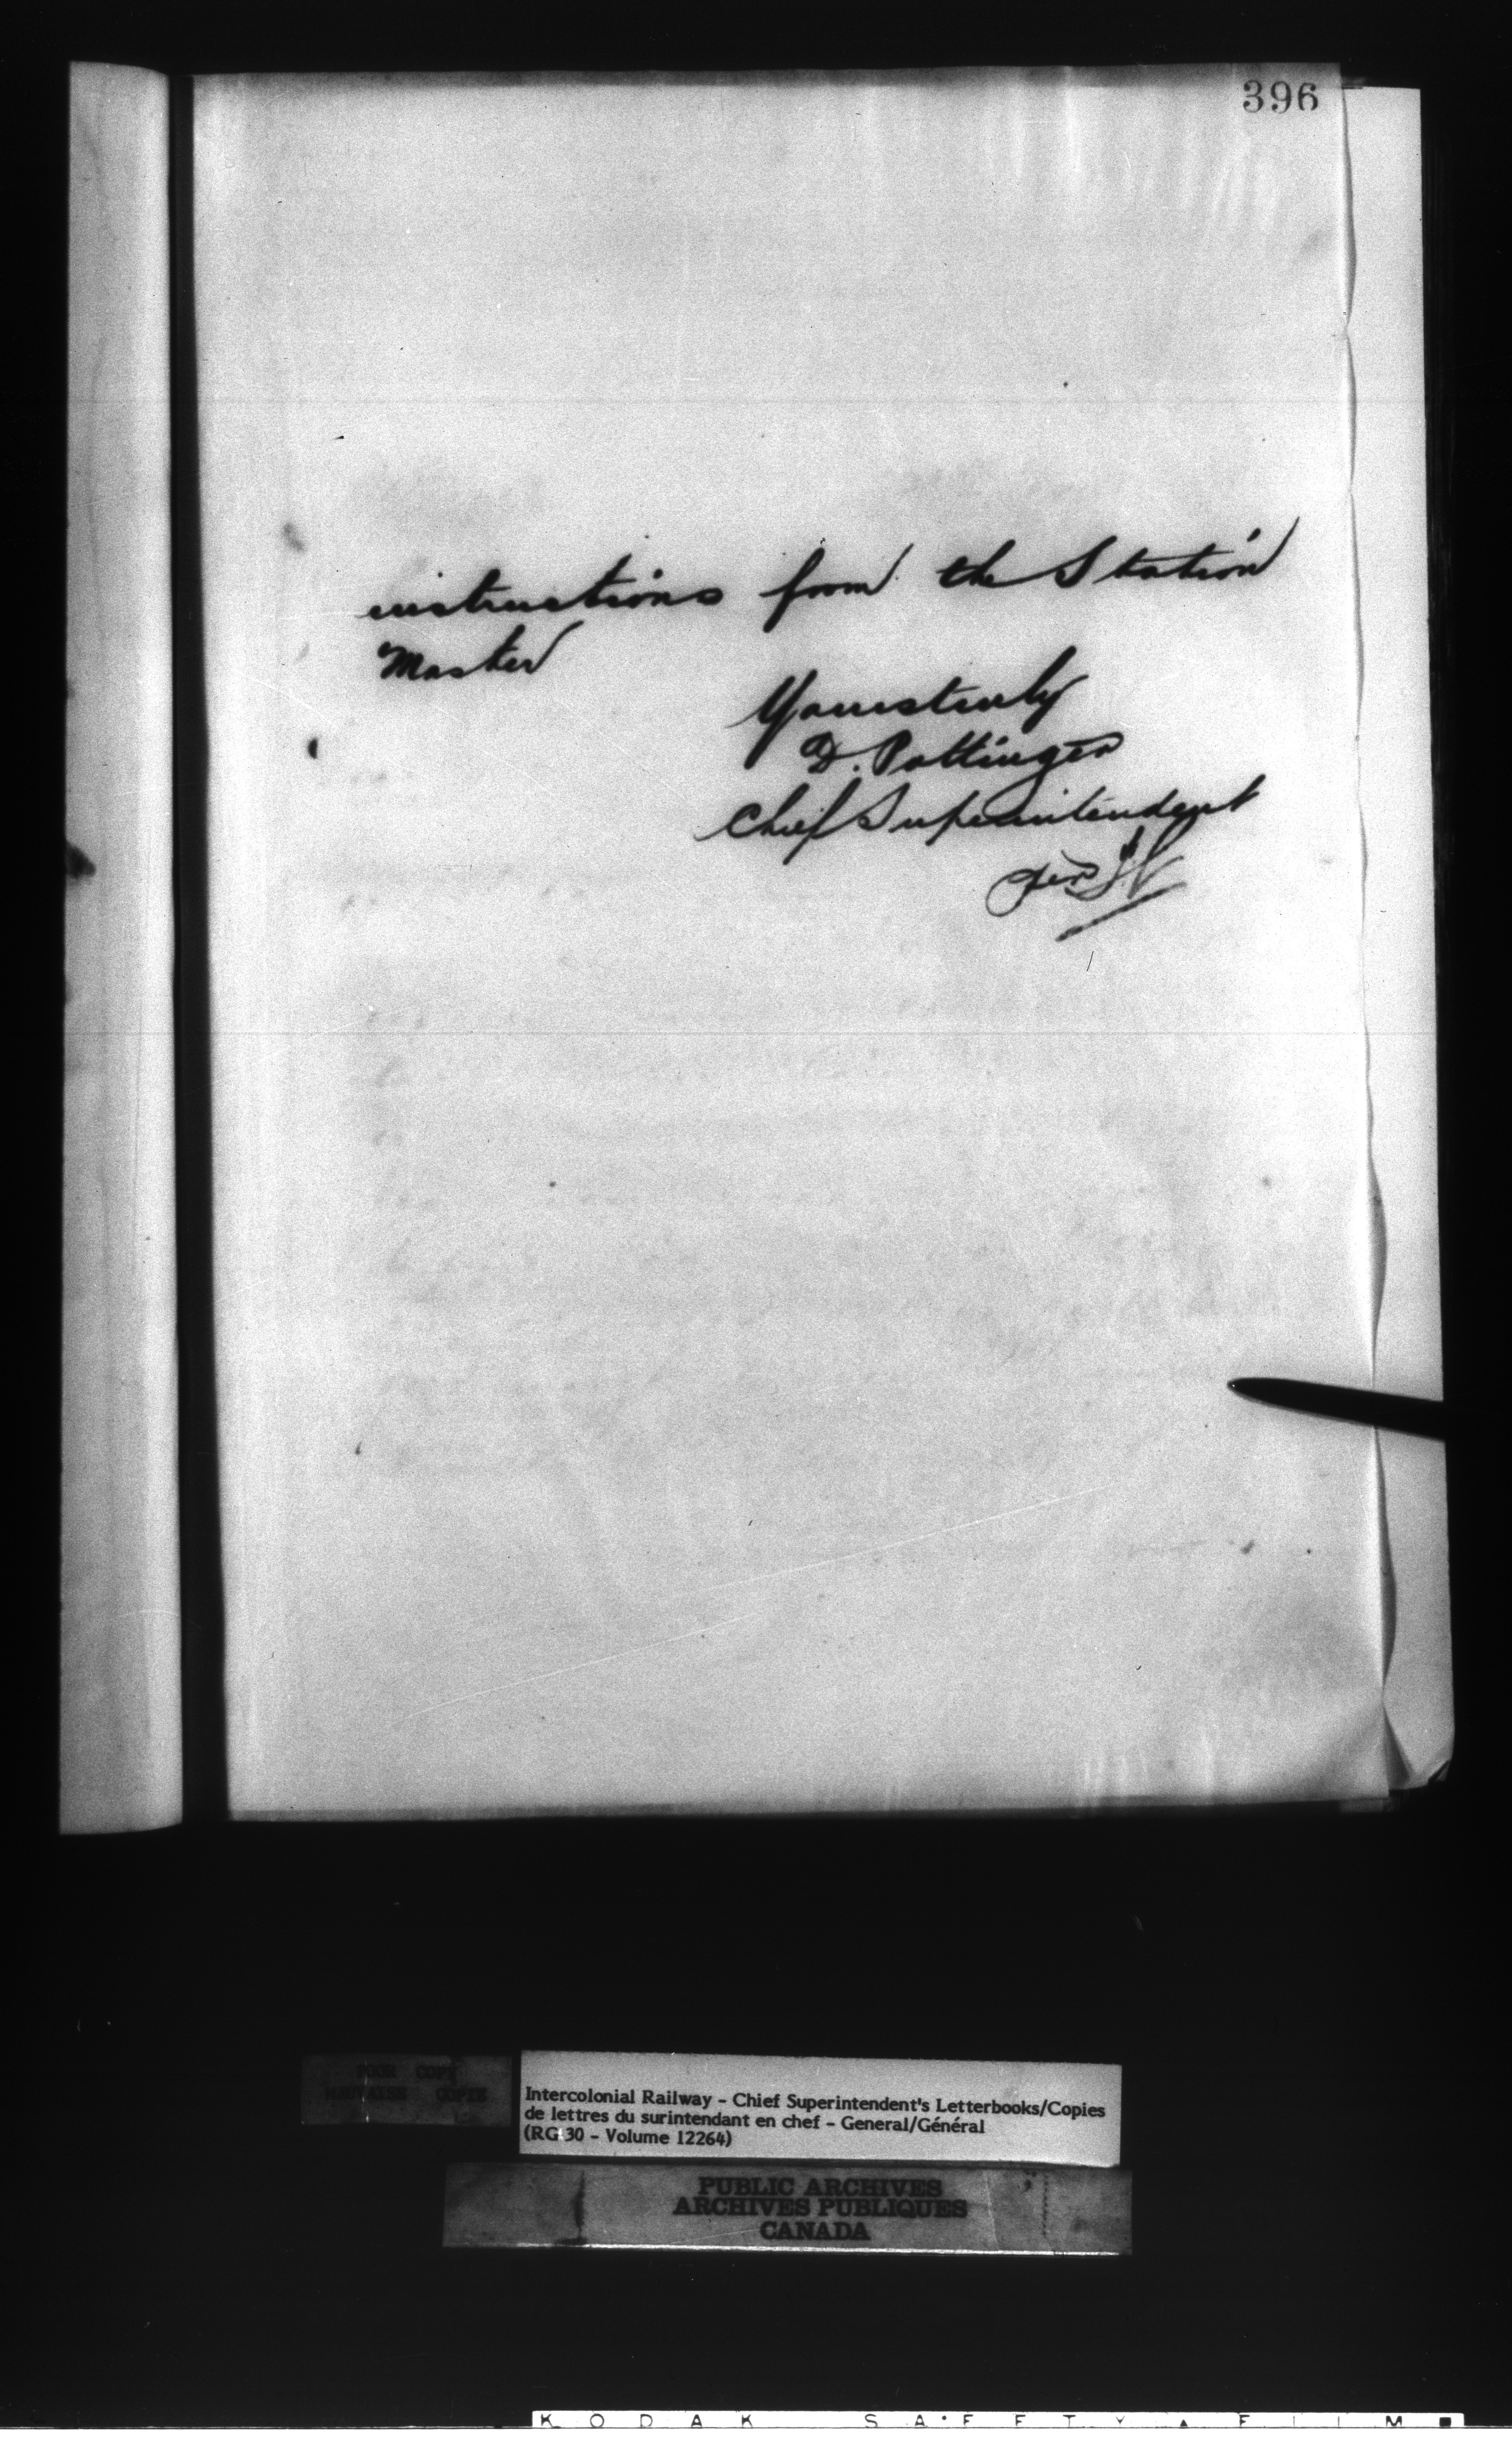 396
instructions from the Station
Master
Yours truly
D. Pottinger
Chief Superintendent
per
POOR COPY
MAUVAISE COPIE
Intercolonial Railway - Chief Superintendent's Letterbooks/Copies
de lettres du surintendant en chef - General/Général
(RG 30 - Volume 12264)
PUBLIC ARCHIVES
ARCHIVES PUBLIQUES
CANADA
KODAK SAFETY FILM